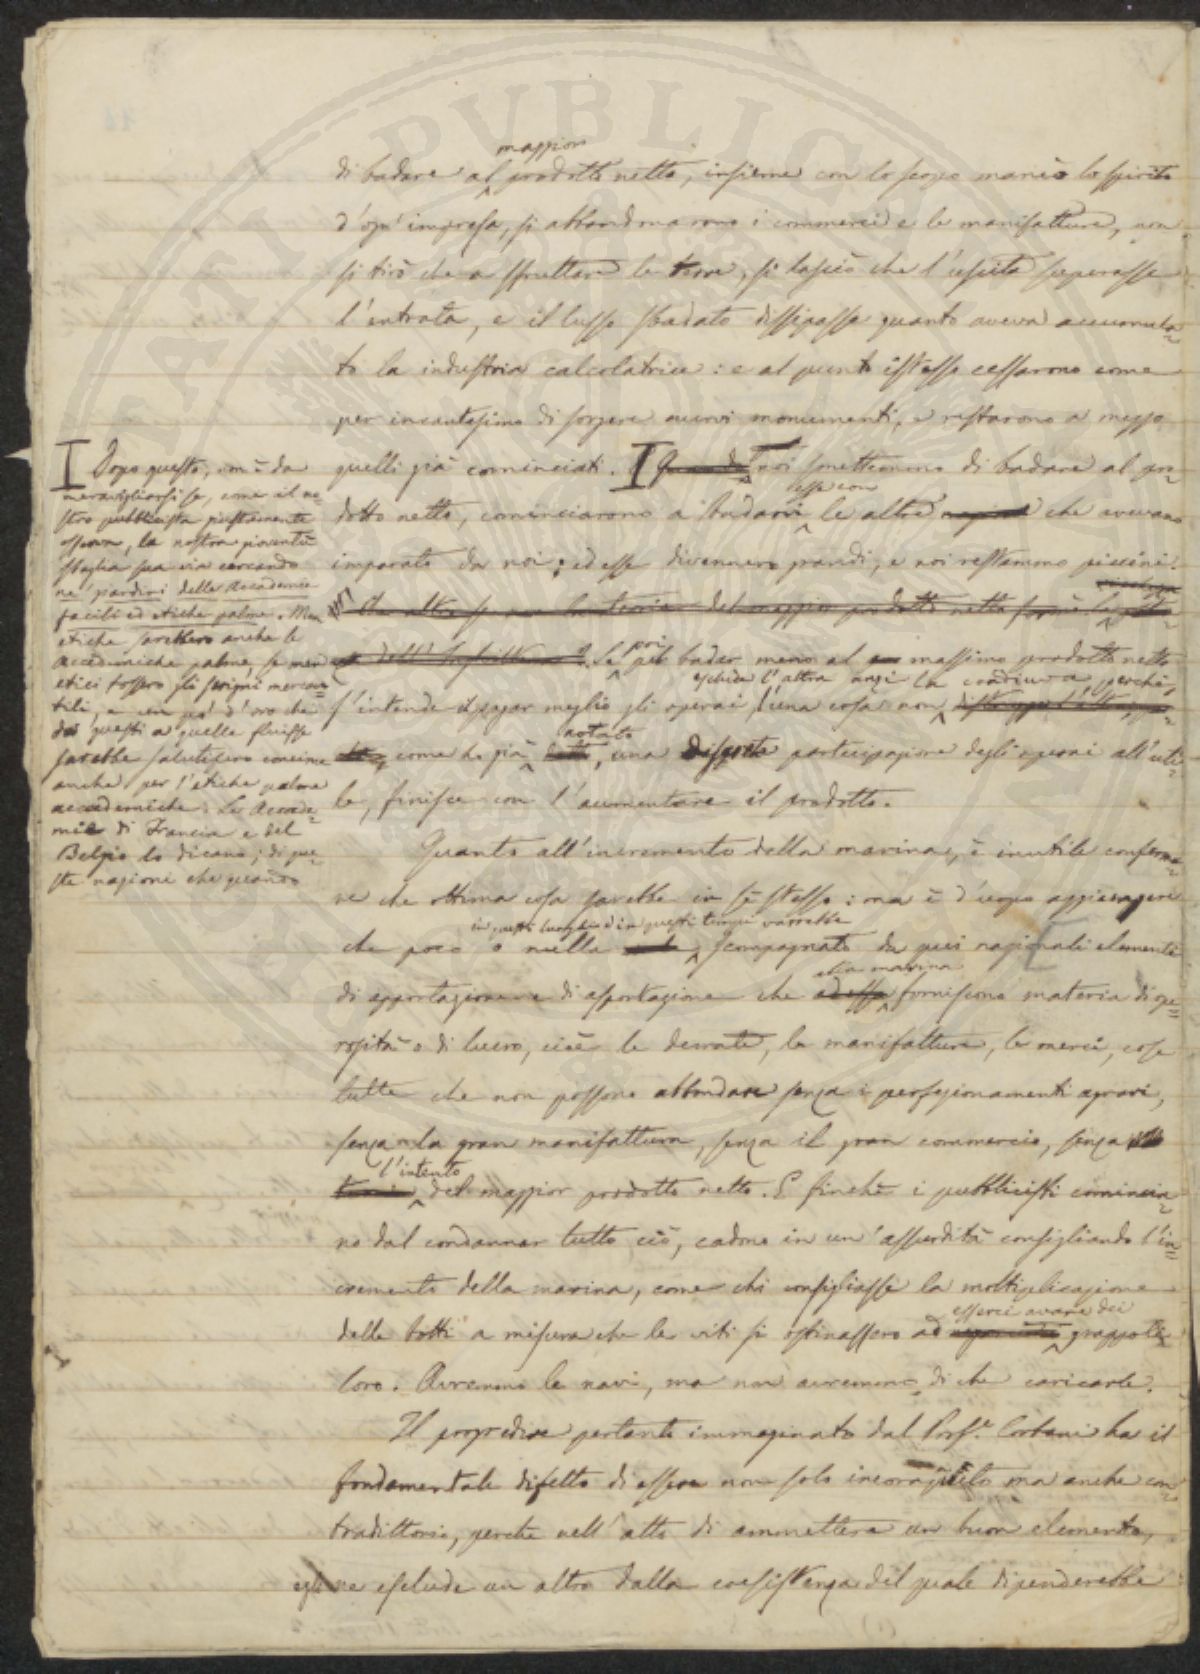 maggior
di badare al prodotto netto, insieme con lo scopo mancò lo spirito
d'ogn'impresa, si abbandonarono i commerci e le manifatture, non
si tirò che a sfruttare le terre, si lasciò che l'uscita superasse
l'entrata, e il lusso sbadato dissipasse quanto aveva accumula=
to la industria calcolatrice: e al punto istesso cessarono come
per incantesimo di sorgere nuovi monumenti, e restarono a mezzo
quelli già cominciati. noi smettemmo di badare al pro=
dotto netto, cominciarono a badarvi le altre che avevano
imparato da noi; ed esse divennero grandi, e noi restammo piccini.
Che altro se non la teoria del maggior prodotto netto
dell' Se poi pel badar meno al massimo prodotto netto
esclude l'altra anzi la perchè,
s'intende il pagar meglio gli operai, l'una cosa non
notato
come ho già detto, una discreta partecipazione degli operai all'uti=
le, finisce con l'aumentare il prodotto.
I Dopo questo, non è da
meravigliarsi se, come il no
stro pubblicista giustamente
osserva, la nostra gioventù
sbaglia sua via cercando
ne' giardini delle Accademie
facili ed etiche palme. Men
etiche sarebbero anche le
accademiche palme, se men
etici fossero gli scrigni mercan=
tili, e un po' d'oro che
da questi a quelle fluisse
sarebbe salutifero concime
anche per l'etiche palme
accademiche. Le Accade=
mie di Francia e del
Belgio lo dicano; di que=
ste nazioni che quando
Quanto all'incremento della marina, è inutile conferma=
re che ottima cosa sarebbe in sè stessa: ma è d'uopo aggiungere
in questi luoghi e in questi tempi varrebbe
che poco o nulla scompagnato da quei nazionali elementi
alla marina
di apportazione e di asportazione che ad essa forniscono materia di ope=
rosità o di lucro, cioè le derrate, le manifatture, le merci, cose
tutte che non possono abbondare senza i perfezionamenti agrari,
senza la gran manifattura, senza il gran commercio, senza
l'intento
del maggior prodotto netto. E finchè i pubblicisti comincia=
no dal condannar tutto ciò, cadono in un'assurdità consigliando l'in=
cremento della marina, come chi consigliasse la moltiplicazione
esserci avare dei
delle botti a misura che le viti si ostinassero ad grappoli
loro. Avremmo le navi, ma non avremmo di che caricarle.
Il progredire pertanto immaginato dal Prof.e Corbani ha il
fondamentale difetto di essere non solo incompleto ma anche con=
tradittorio, perchè nell'atto di ammettere un buon elemento,
egli ne esclude un altro dalla coesistenza del quale dipenderebbe